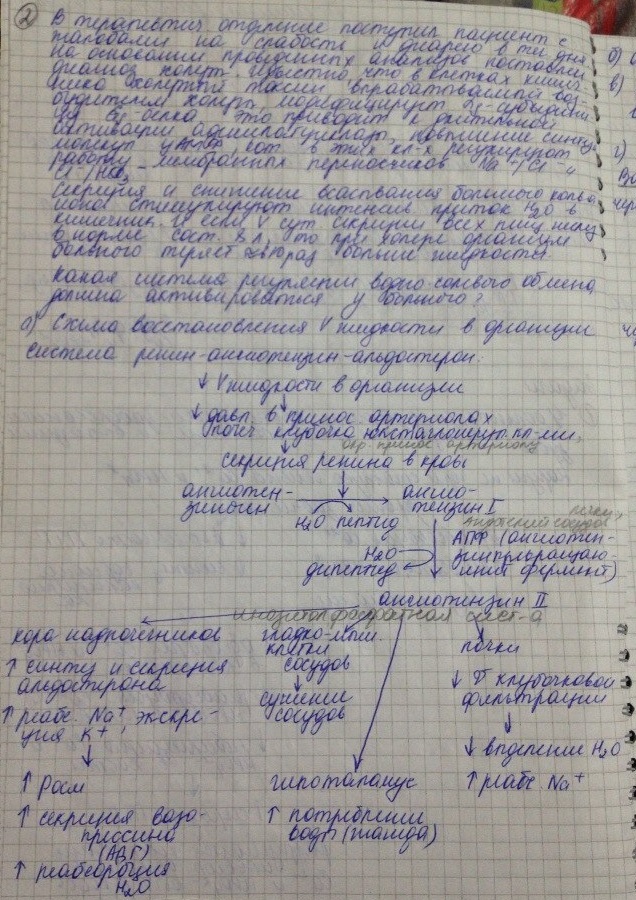 ② В терапевтич отделение поступил пациент с
жалобами на слабость и диарею в теч дня
на основании проведенных анализов поставлен
диагноз холера. Известно, что в клетках кишеч
ника холерный токсин, вырабатываемый воз-
будителем холеры, модифицирует αs-субъединицу
Gs-белка. Это приводит к длительной
активации аденилатциклазы, повышению синтеза
молекул цАМФ, кот. в этих кл-х регулируют
работу мембранных переносчиков Na⁺/Cl⁻ и
Cl⁻/HCO₃⁻
Секреция и снижение всасывания большого кол-ва
ионов стимулируют интенсив приток H₂O в
кишечник. И если V сут секреции всех пищ желез
в норме сост. 8 л, то при холере организм
больного теряет в 2 раза больше жидкости.
Какая система регуляции водно-солевого обмена
должна активироваться у больного?
а) Схема восстановления V жидкости в организме
система ренин-ангиотензин-альдостерон:
↓ V жидкости в организме
↓ давл. в принос артериолах
почеч клубочка юкстагломерул. кл-ми,
окр. принос. артериолу
секреция ренина в кровь
ангиотен-
зиноген
ангио-
тензин I
H₂O пептид
почки,
сосудов
АПФ (ангиотен-
зинпревращаю-
щий фермент)
H₂O
дипептид
ангиотензин II
инозитолфосфатная сист-а
кора надпочечников
↑ синтез и секреция
альдостерона
↑ реабс. Na⁺, экскре-
ция K⁺
↑ Pосм
↑ секреция вазо-
прессина
(АДГ)
↑ реабсорбция
H₂O
гладко-мыш.
клетки
сосудов
сужение
сосудов
гипоталамус
↑ потребление
воды (жажда)
почки
↓ V клубочковой
фильтрации
↓ выделение H₂O
↑ реабс. Na⁺
б)
в)
г)